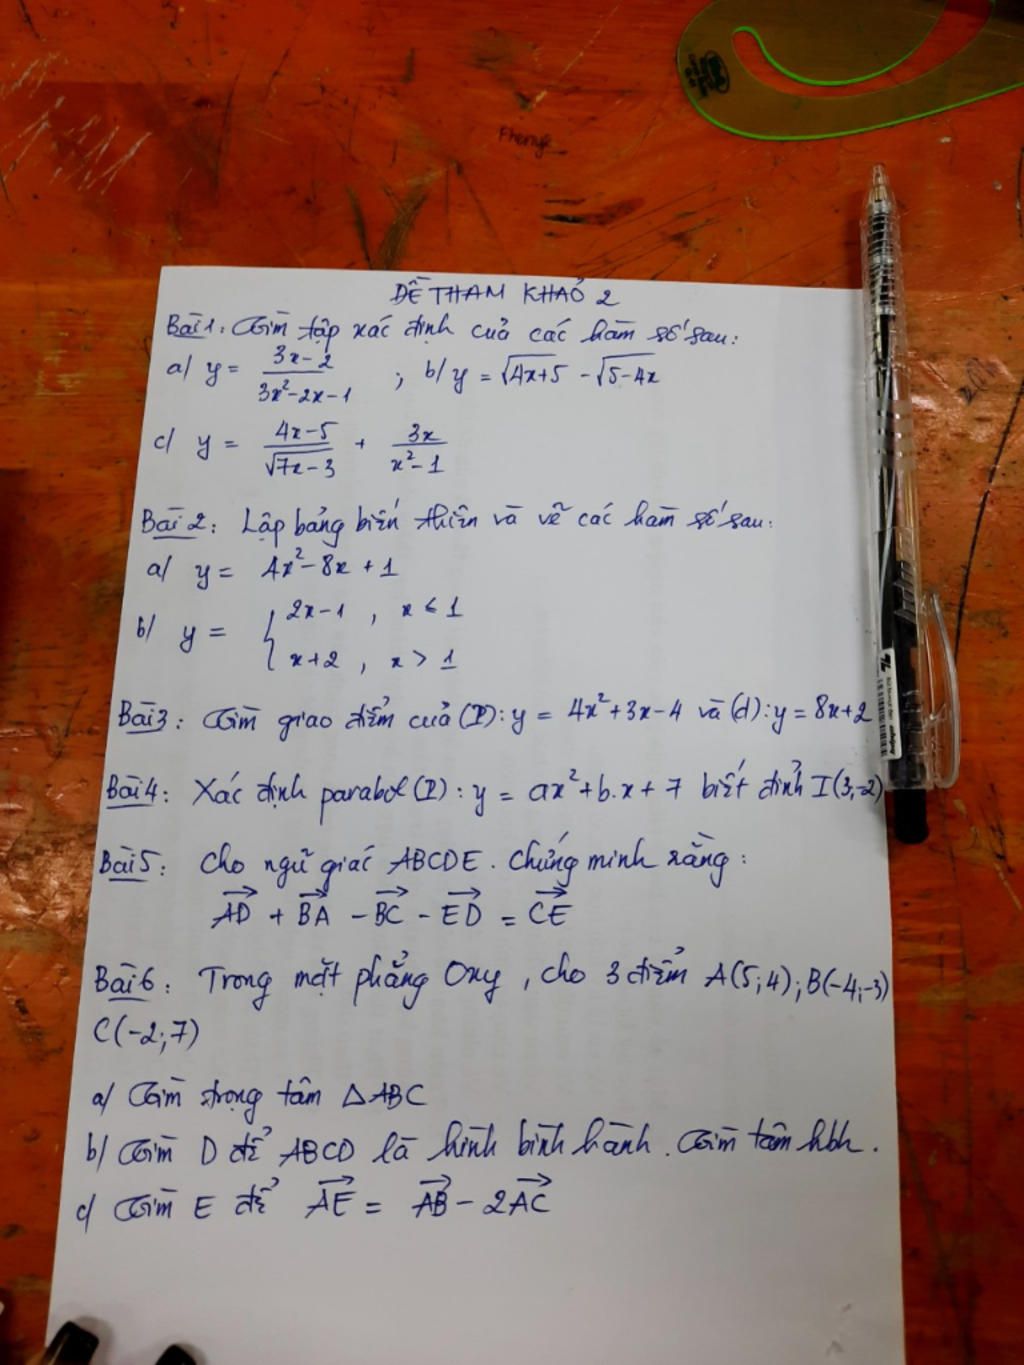 Fhenye
ĐỀ THAM KHẢO 2
Bài 1: Tìm tập xác định của các hàm số sau:
a/ y = (3x-2)/(3x²-2x-1) ; b/ y = √(4x+5) - √(5-4x)
c/ y = (4x-5)/√(7x-3) + 3x/(x²-1)
Bài 2: Lập bảng biến thiên và vẽ các hàm số sau:
a/ y = 4x²-8x+1
b/ y = { 2x-1 , x ≤ 1
x+2 , x > 1
Bài 3: Tìm giao điểm của (P): y = 4x²+3x-4 và (d): y = 8x+2
Bài 4: Xác định parabol (P): y = ax²+b.x+7 biết đỉnh I(3,-2)
Bài 5: Cho ngũ giác ABCDE. Chứng minh rằng:
AD→ + BA→ - BC→ - ED→ = CE→
Bài 6: Trong mặt phẳng Oxy, cho 3 điểm A(5;4); B(-4;-3)
C(-2;7)
a/ Tìm trọng tâm ΔABC
b/ Tìm D để ABCD là hình bình hành. Tìm tâm hbh.
c/ Tìm E để AE→ = AB→ - 2AC→